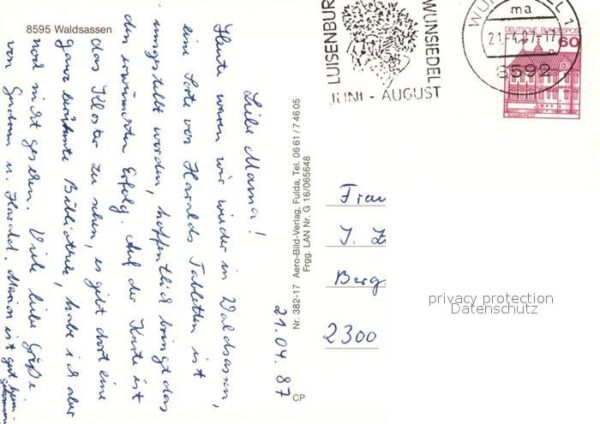 8595 Waldsassen
Liebe Mama!
Heute waren wir wieder in Waldsassen,
eine Sorte von Haralds Tabletten ist
umgestellt worden, hoffentlich bringt das
den erwünschten Erfolg. Auf der Karte ist
das Kloster zu sehen, es gibt dort eine
ganz berühmte Bibliothek, habe ich aber
noch nicht gesehen. Viele liebe Grüße
von Gudrun u. Harald. Marion ist gut heim-
gekommen
21.04.87
Nr. 382-17 Aero-Bild-Verlag, Fulda, Tel. 06 61 / 7 46 05
Frgg. LAN Nr. G 16/065648
CP
LUISENBUR
WUNSIEDEL
JUNI - AUGUST
WUN EL 1
ma
21.-4.87.-17
8592
DEUTSCHE BUNDESPOST
60
Frau
J. Z
Berg
2300
privacy protection
Datenschutz